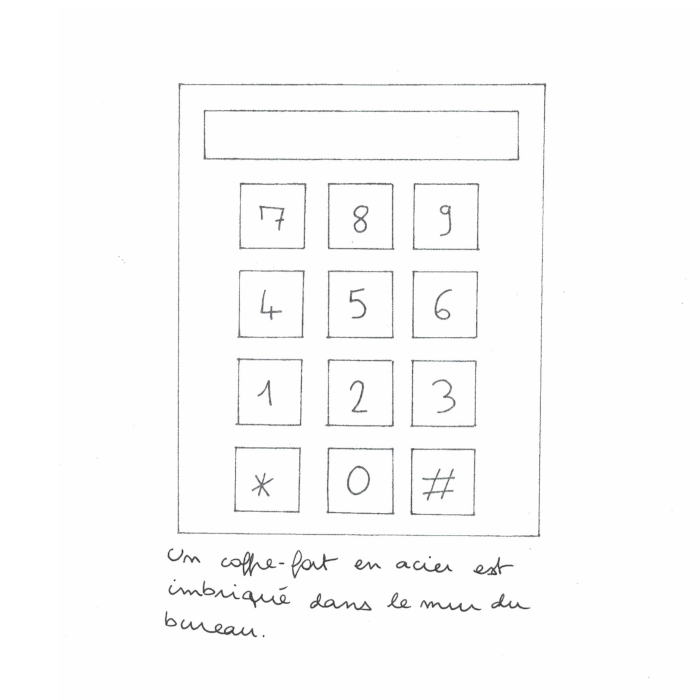 7 8 9
4 5 6
1 2 3
* 0 #
Un coffre-fort en acier est
imbriqué dans le mur du
bureau.